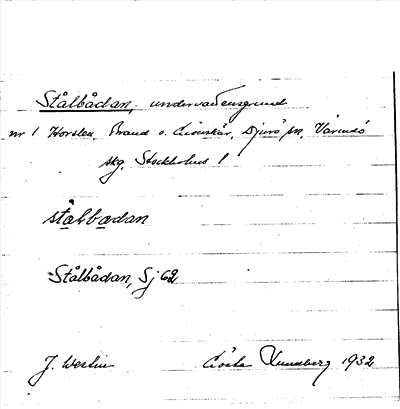 Stålbådan, undervattensgrund
nr 1 Horsten, Brand o. Lionskär, Djurö sn, Värmdö
skg, Stockholms l
stålbådan
Stålbådan, Sj 62
J. Westin Gösta Lundberg 1932